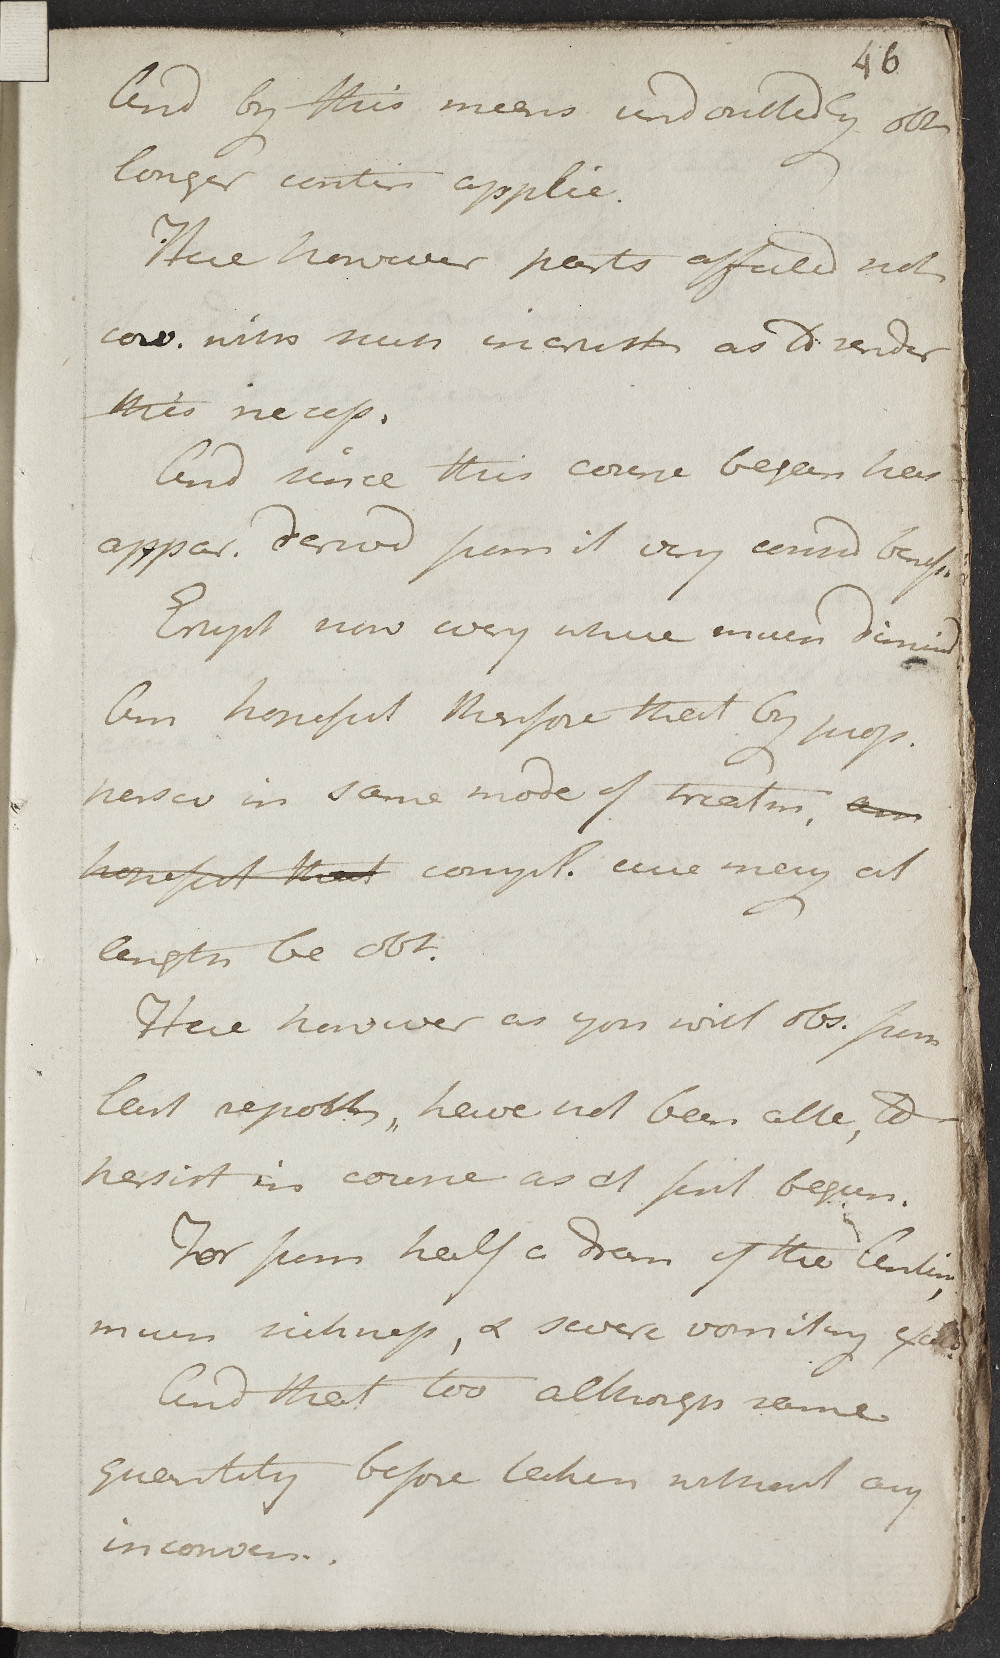 46
And by this means undoubtedly obtn
longer contin applic.
Here however parts affected not
cov. with such incrustn as to render
this necess.
And since this course began has
appar. derived from it very consid benef.
Erupt now every where much dimind
Am hopeful therefore that by prop.
persev in same mode of treatm, am
hopeful that compl. cure may at
length be obt.
Here however as you will obs. from
last reports, have not been able, to
persist in course as at first begun.
For from half a dram of the Antim,
much sickness, & severe vomiting excited.
And that too although same
quantity before taken without any
inconven..